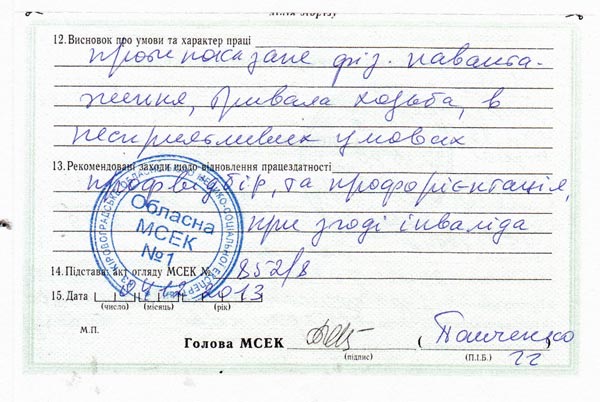 лінія відрізу
12. Висновок про умови та характер праці
протипоказане фіз. наванта-
ження, тривала ходьба, в
несприятливих умовах
13. Рекомендовані заходи щодо відновлення працездатності
профвідбір, та профорієнтація,
при згоді інваліда
Обласна
МСЕК
№1
14. Підстава: акт огляду МСЕК № 852/8
15. Дата 2013
(число) (місяць) (рік)
М.П.
Голова МСЕК ( )
(підпис) (П.І.Б.)